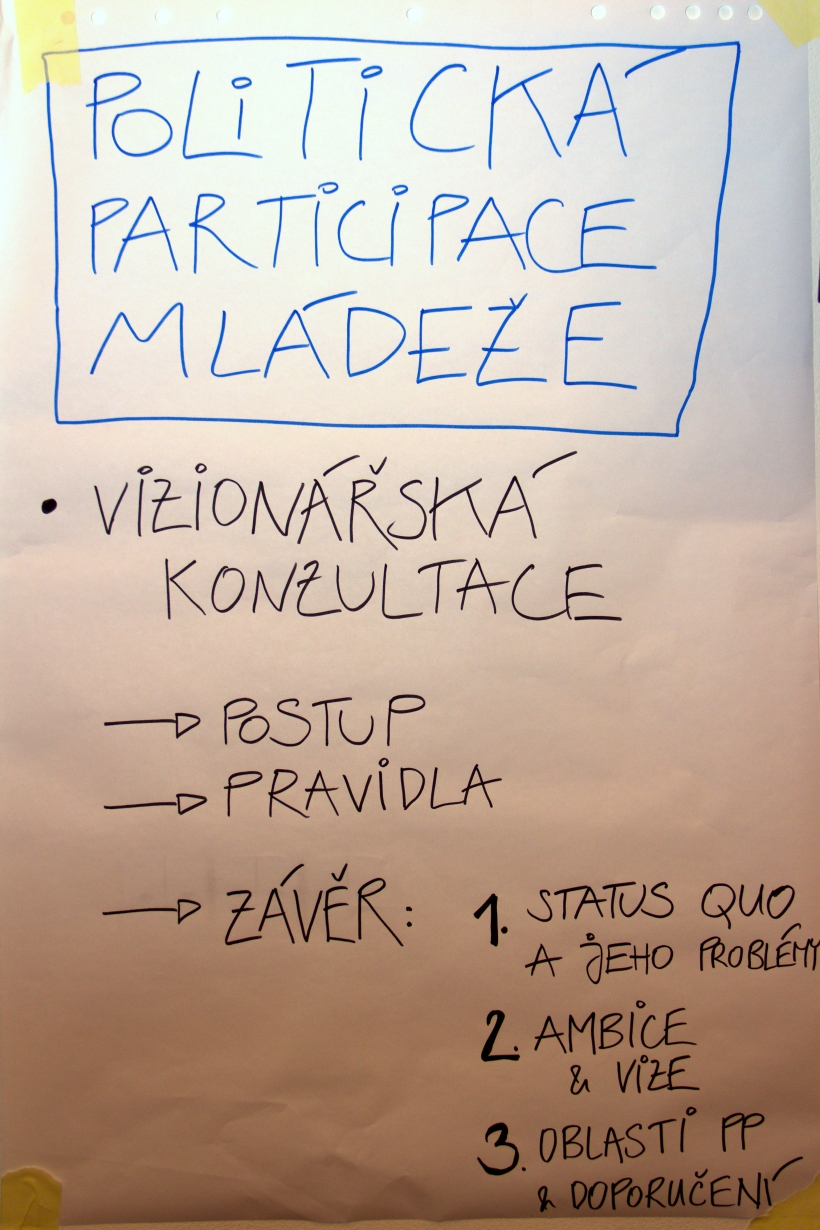 POLITICKÁ
PARTICIPACE
MLÁDEŽE
• VIZIONÁŘSKÁ
KONZULTACE
→ POSTUP
→ PRAVIDLA
→ ZÁVĚR: 1. STATUS QUO
A JEHO PROBLÉMY
2. AMBICE
& VIZE
3. OBLASTI PP
& DOPORUČENÍ